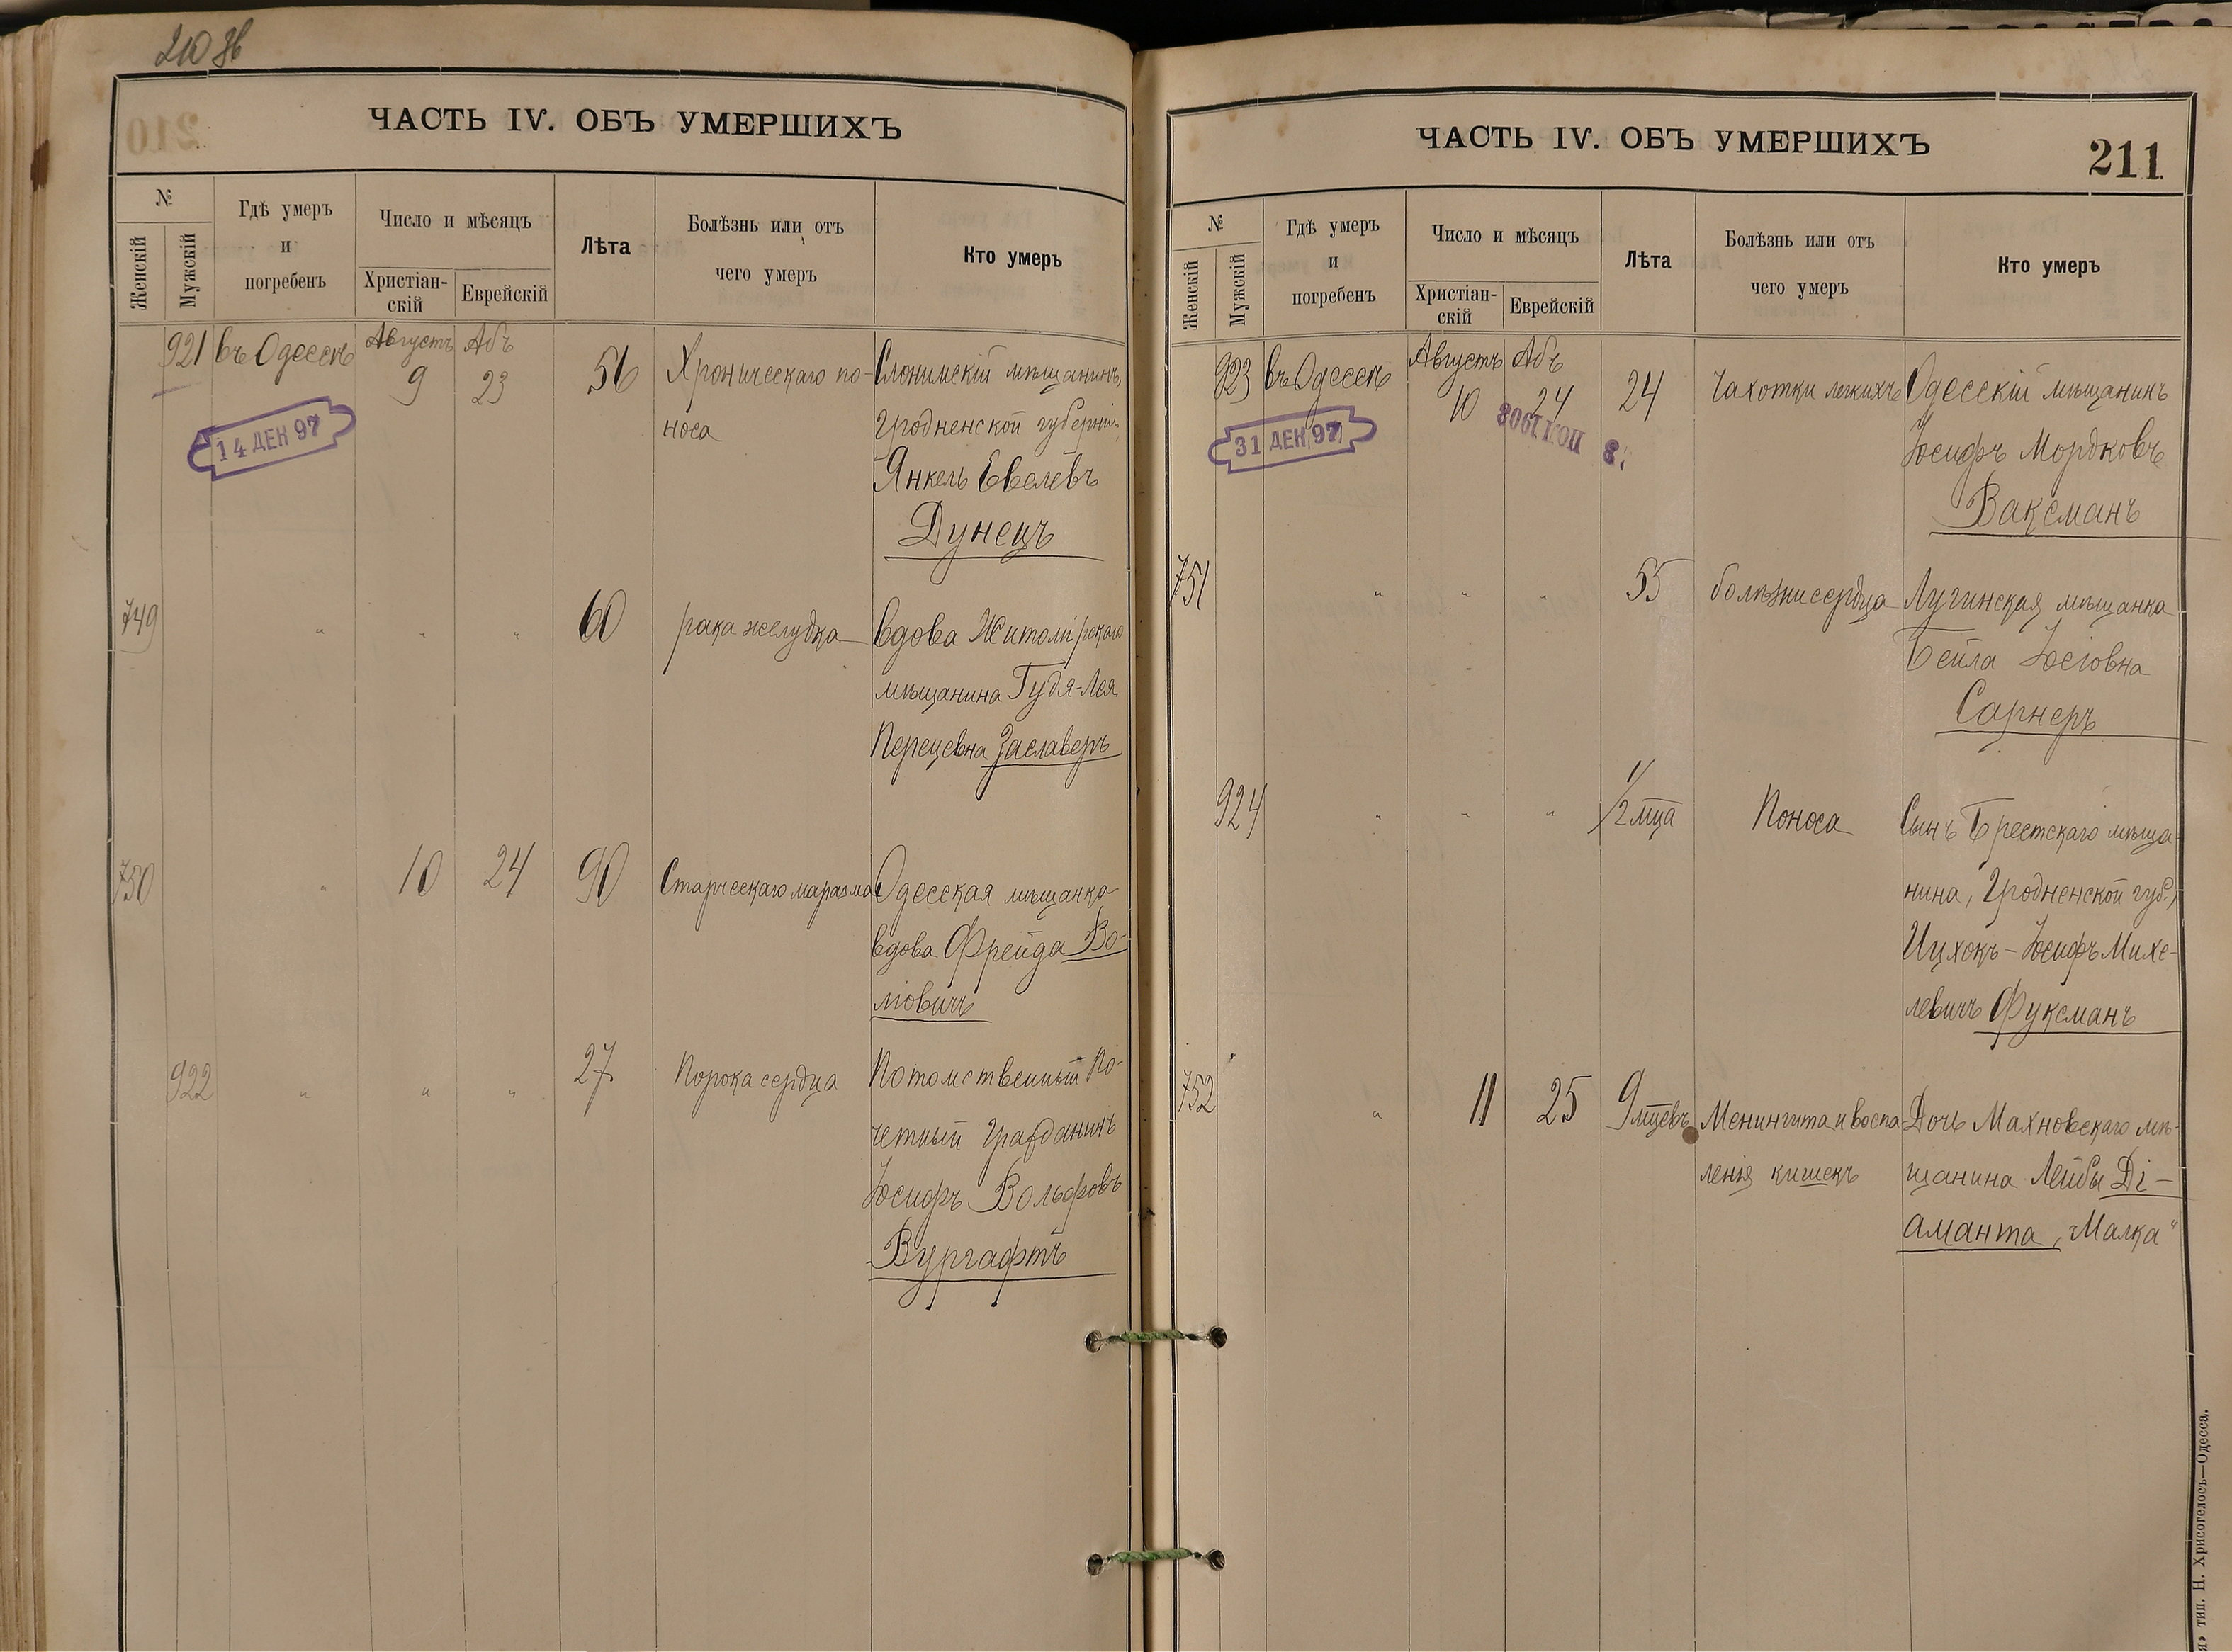 210 об
ЧАСТЬ IV. ОБЪ УМЕРШИХЪ
№
Женскій
Мужскій
Гдѣ умеръ
и
погребенъ
Число и мѣсяцъ
Христіан-
скій
Еврейскій
Лѣта
Болѣзнь или отъ
чего умеръ
Кто умеръ
921 въ Одессѣ Августъ 9 Абъ 23 56 Хроническаго по- Слонимскій мѣщанинъ,
носа Гродненской губерніи,
14 ДЕК 97
Янкель Евелевъ
Дунецъ
749 " " " 60 рака желудка вдова Житомірскаго
мѣщанина Гудя-Лея
Перецевна Заславеръ
750 " 10 24 90 Старческаго маразма Одесская мѣщанка
вдова Фрейда Во-
ліовичъ
922 " " " 27 Порока сердца Потомственный По-
четный Гражданинъ
Іосифъ Вольфовъ
Вургафтъ
ЧАСТЬ IV. ОБЪ УМЕРШИХЪ
211
№
Женскій
Мужскій
Гдѣ умеръ
и
погребенъ
Число и мѣсяцъ
Христіан-
скій
Еврейскій
Лѣта
Болѣзнь или отъ
чего умеръ
Кто умеръ
923 въ Одессѣ Августъ 10 Абъ 24 24 Чахотки легкихъ Одесскій мѣщанинъ
31 ДЕК 97
Іосифъ Мордковъ
Ваксманъ
751 " " " 55 болѣзни сердца Лугинская мѣщанка
Бейла Іосіовна
Сарнеръ
924 " " " 1/2 мца Поноса Сынъ Брестскаго мѣща-
нина, Гродненской губ.,
Ицхокъ-Іосифъ Михе-
левичъ Фуксманъ
752 " 11 25 9 мцевъ Менингита и воспа- Дочь Махновскаго мѣ-
ленія кишекъ щанина Лейбы Ді-
аманта, "Малка"
тип. Н. Хрисогелосъ—Одесса.